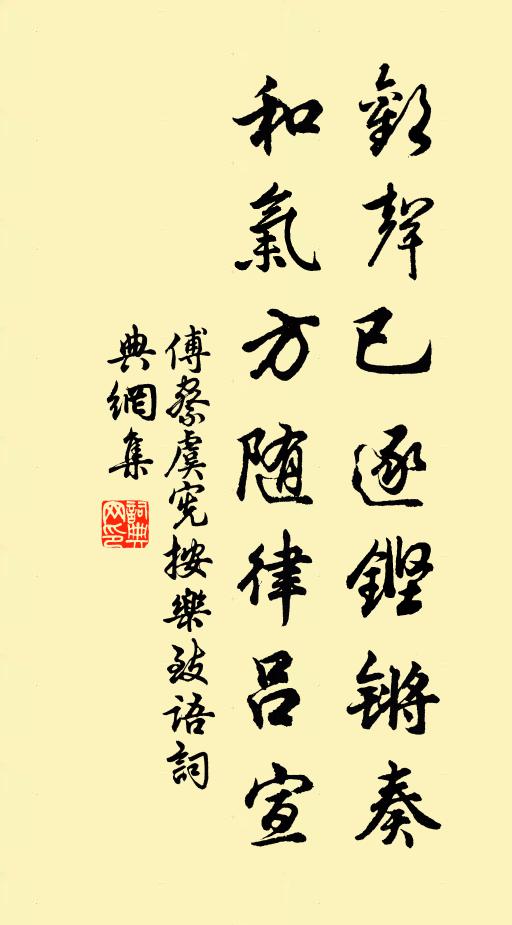 歡聲已逐鏗鏘奏
和氣方随律呂宣
傅察虞憲按樂致語詞
典網集
詞典网印